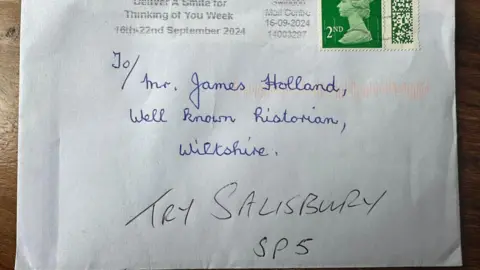 Deliver A Smile for
Thinking of You Week
16th-22nd September 2024
Mail Centre
16-09-2024
14003297
2ND
To/
Mr. James Holland,
Well known historian,
Wiltshire.
TRY SALISBURY
SP5